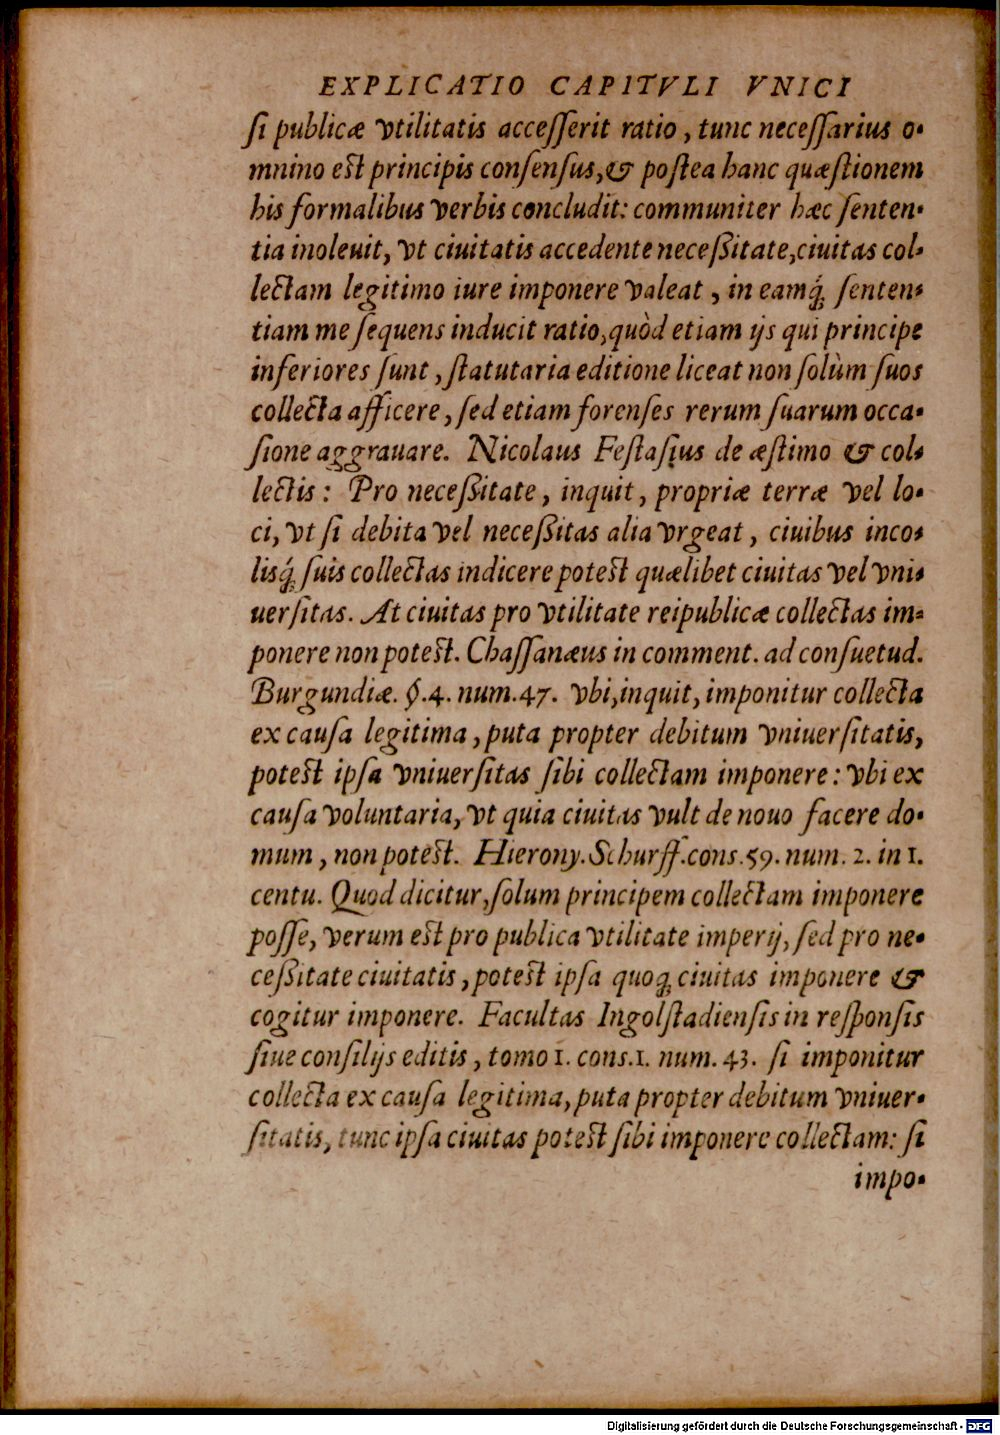 EXPLICATIO CAPITVLI VNICI
ſi publicæ vtilitatis acceſſerit ratio, tunc neceſſarius o-
mnino eſt principis conſenſus, & poſtea hanc quæſtionem
his formalibus verbis concludit: communiter hæc ſenten-
tia inoleuit, vt ciuitatis accedente neceßitate, ciuitas col-
lectam legitimo iure imponere valeat, in eamq́; ſenten-
tiam me ſequens inducit ratio, quòd etiam ijs qui principe
inferiores ſunt, ſtatutaria editione liceat non ſolùm ſuos
collecta afficere, ſed etiam forenſes rerum ſuarum occa-
ſione aggrauare. Nicolaus Feſtaſius de æſtimo & col-
lectis: Pro neceßitate, inquit, propriæ terræ vel lo-
ci, vt ſi debita vel neceßitas alia vrgeat, ciuibus inco-
lisq́; ſuis collectas indicere poteſt quælibet ciuitas vel vni-
uerſitas. At ciuitas pro vtilitate reipublicæ collectas im-
ponere non poteſt. Chaſſanæus in comment. ad conſuetud.
Burgundiæ. §.4. num.47. vbi, inquit, imponitur collecta
ex cauſa legitima, puta propter debitum vniuerſitatis,
poteſt ipſa vniuerſitas ſibi collectam imponere: vbi ex
cauſa voluntaria, vt quia ciuitas vult de nouo facere do-
mum, non poteſt. Hierony. Schurff. conſ.59. num. 2. in 1.
centu. Quod dicitur, ſolum principem collectam imponere
poſſe, verum eſt pro publica vtilitate imperij, ſed pro ne-
ceßitate ciuitatis, poteſt ipſa quoq; ciuitas imponere &
cogitur imponere. Facultas Ingolſtadienſis in reſponſis
ſiue conſilijs editis, tomo 1. conſ.1. num. 43. ſi imponitur
collecta ex cauſa legitima, puta propter debitum vniuer-
ſitatis, tunc ipſa ciuitas poteſt ſibi imponere collectam: ſi
impo-
Digitalisierung gefördert durch die Deutsche Forschungsgemeinschaft - DFG